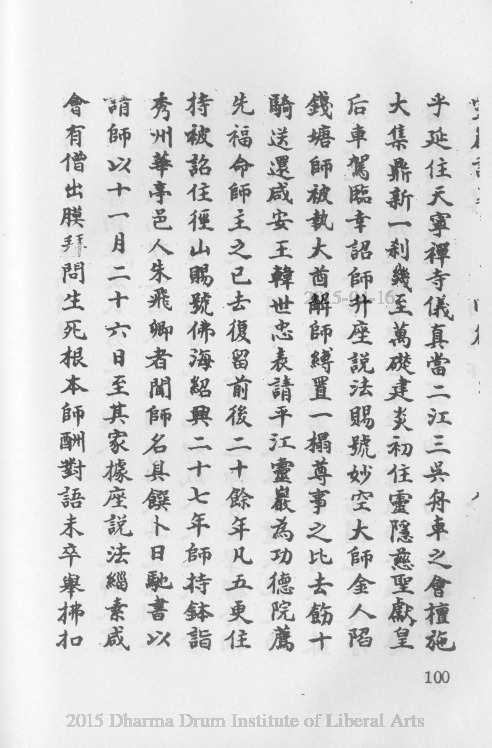 乎延住天寧禪寺儀真當二江三吳舟車之會檀施
大集鼎新一剎幾至萬礎建炎初住靈隱慈聖獻皇
后車駕臨幸詔師升座說法賜號妙空大師金人陷
錢塘師被執大酋解師縛置一榻尊事之比去飭十
騎送還咸安王韓世忠表請平江靈巖為功德院薦
先福命師主之已去復留前後二十餘年凡五更住
持被詔住徑山賜號佛海紹興二十七年師持鉢詣
秀州華亭邑人朱飛卿者聞師名具饌卜日馳書以
請師以十一月二十六日至其家據座說法緇素咸
會有僧出膜拜問生死根本師酬對語未卒舉拂扣
100
2015 Dharma Drum Institute of Liberal Arts